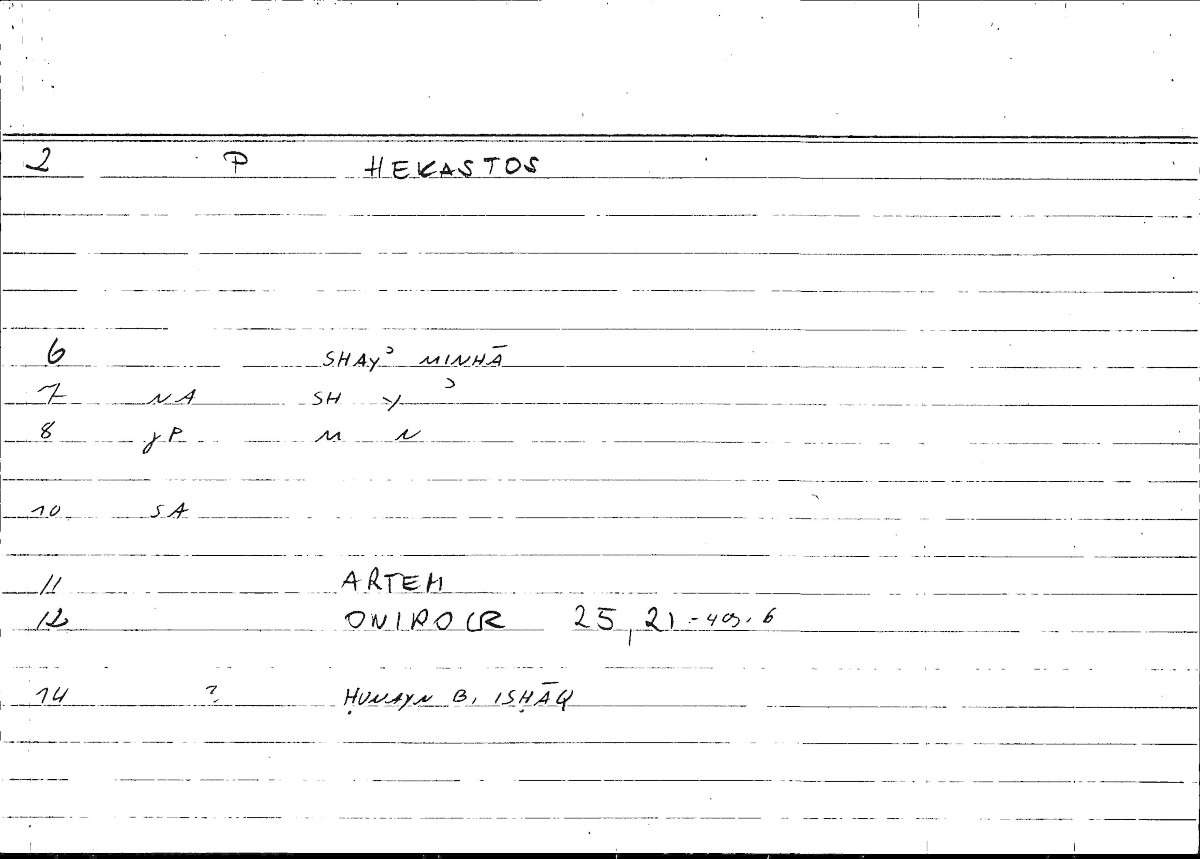 2 P HEKASTOS
6 SHAYʾ MINHĀ
7 NA SH Y ʾ
8 JP M N
10 SA
11 ARTEM
12 ONIROCR 25,21 - 49.6
14 ? ḤUNAYN B. ISḤĀQ